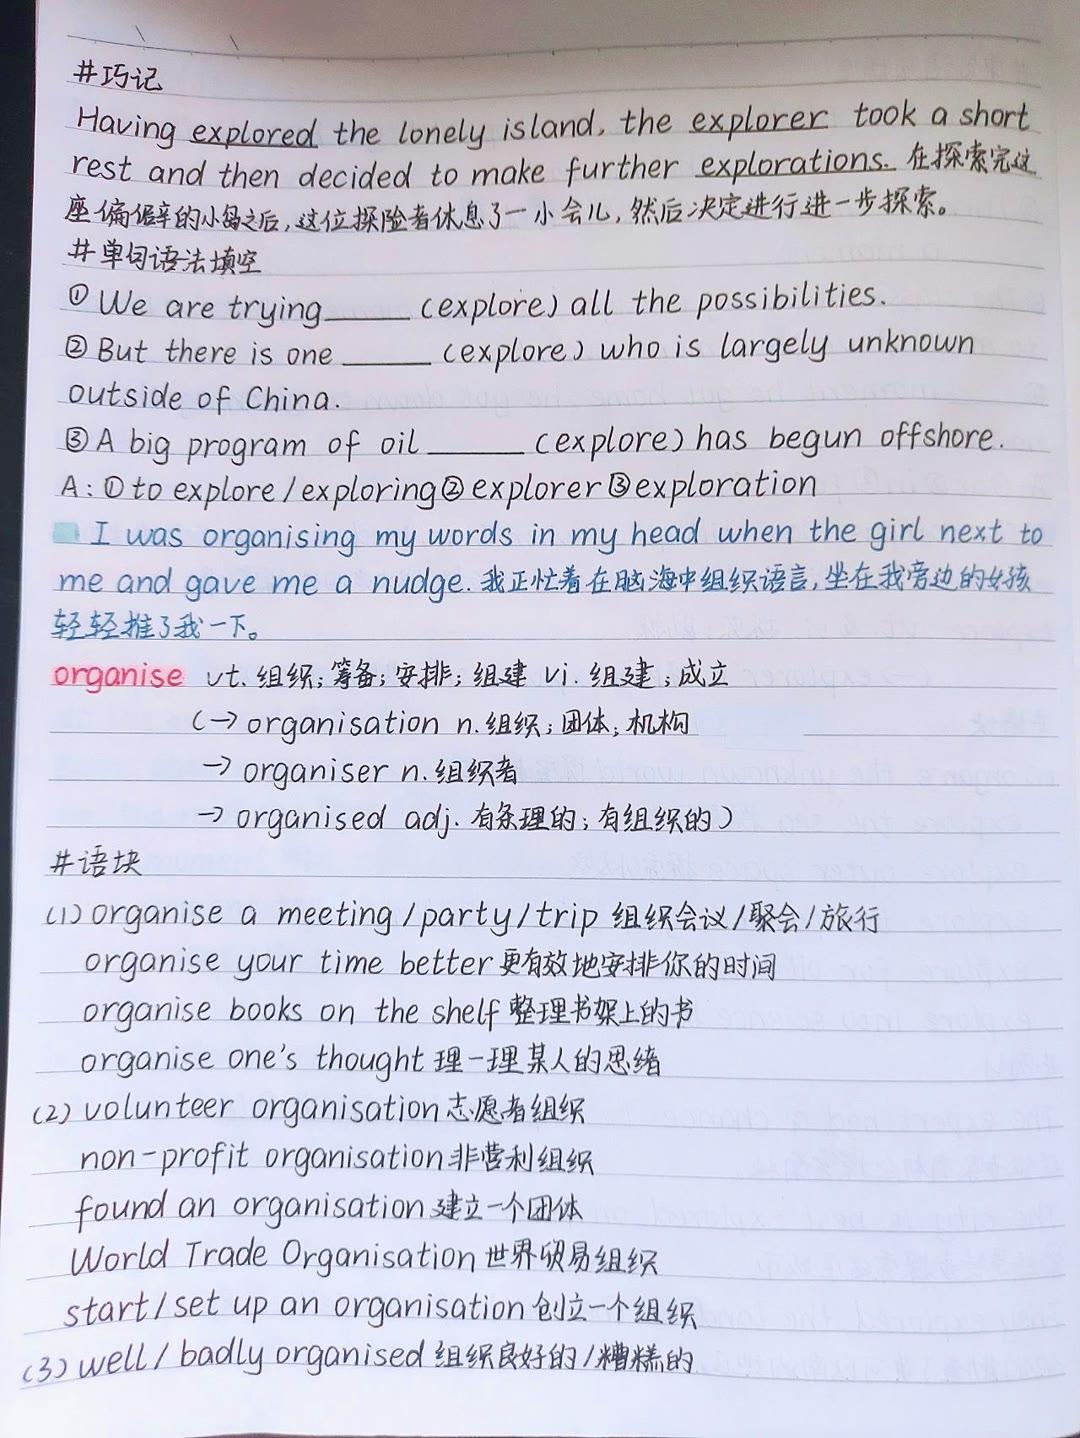 #巧记
Having explored the lonely island, the explorer took a short
rest and then decided to make further explorations. 在探索完这
座偏僻的小岛之后,这位探险者休息了一小会儿,然后决定进行进一步探索。
#单句语法填空
①We are trying______(explore) all the possibilities.
②But there is one ______ (explore) who is largely unknown
outside of China.
③A big program of oil ______ (explore) has begun offshore.
A:①to explore/exploring②explorer③exploration
I was organising my words in my head when the girl next to
me and gave me a nudge. 我正忙着在脑海中组织语言,坐在我旁边的女孩
轻轻推了我一下。
organise vt.组织;筹备;安排;组建 vi.组建;成立
(→organisation n.组织;团体;机构
→organiser n.组织者
→organised adj.有条理的;有组织的)
#语块
(1)organise a meeting/party/trip 组织会议/聚会/旅行
organise your time better更有效地安排你的时间
organise books on the shelf整理书架上的书
organise one's thought 理一理某人的思绪
(2)volunteer organisation志愿者组织
non-profit organisation非营利组织
found an organisation建立一个团体
World Trade Organisation世界贸易组织
start/set up an organisation创立一个组织
(3)well/badly organised 组织良好的/糟糕的